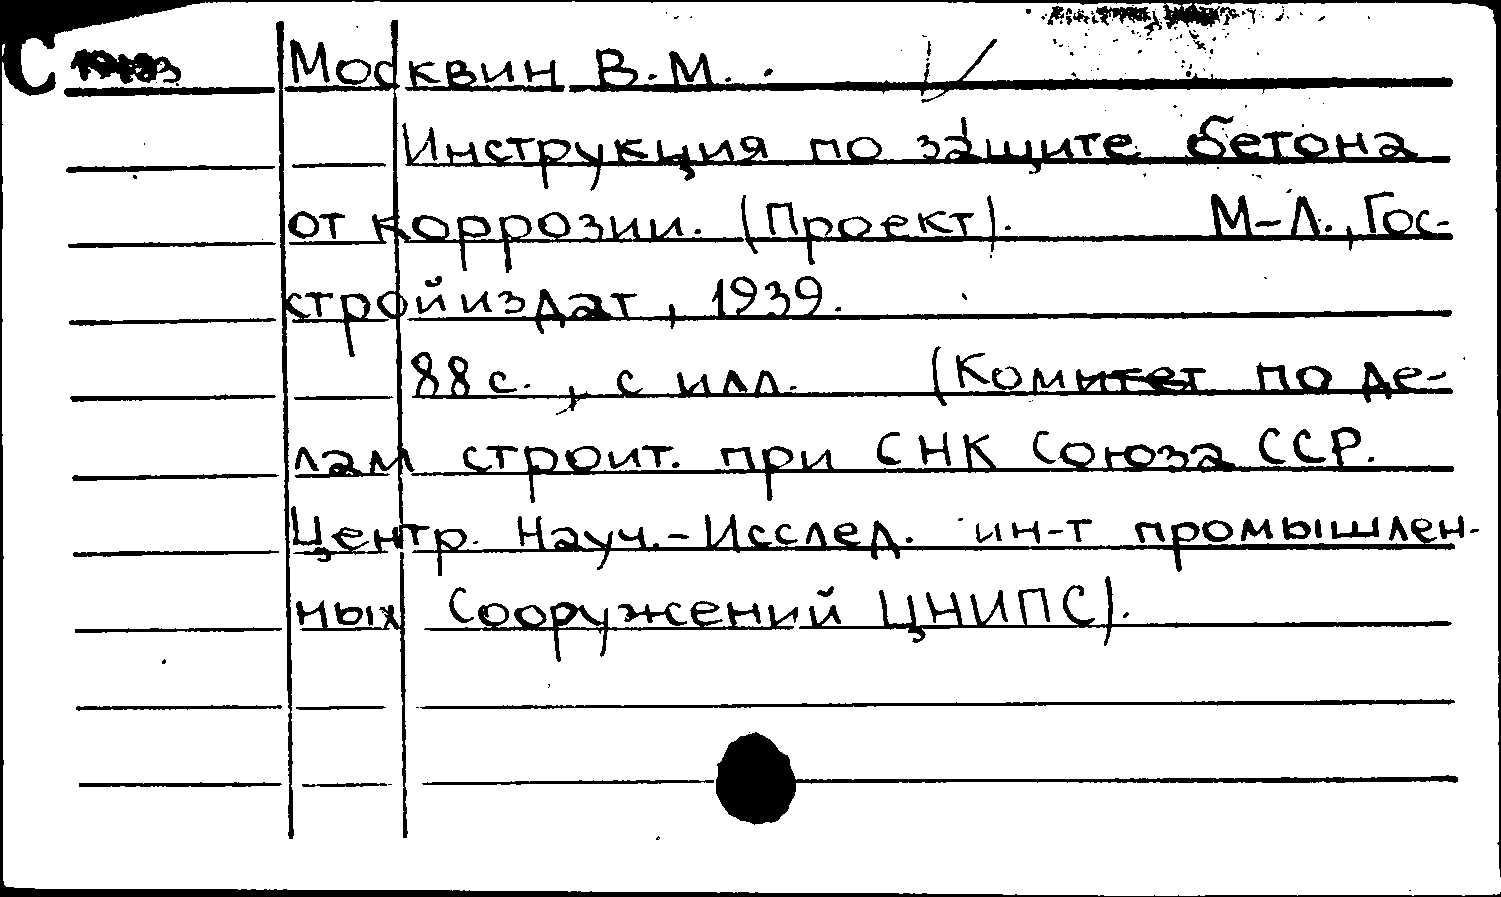 С Москвин В.М.
Инструкция по защите бетона
от коррозии. (Проект). М-Л., Гос-
стройиздат, 1939.
88 с., с илл. (Комитет по де-
лам строит. при СНК Союза ССР.
Центр. Науч.-Исслед. ин-т промышлен-
ных Сооружений ЦНИПС).